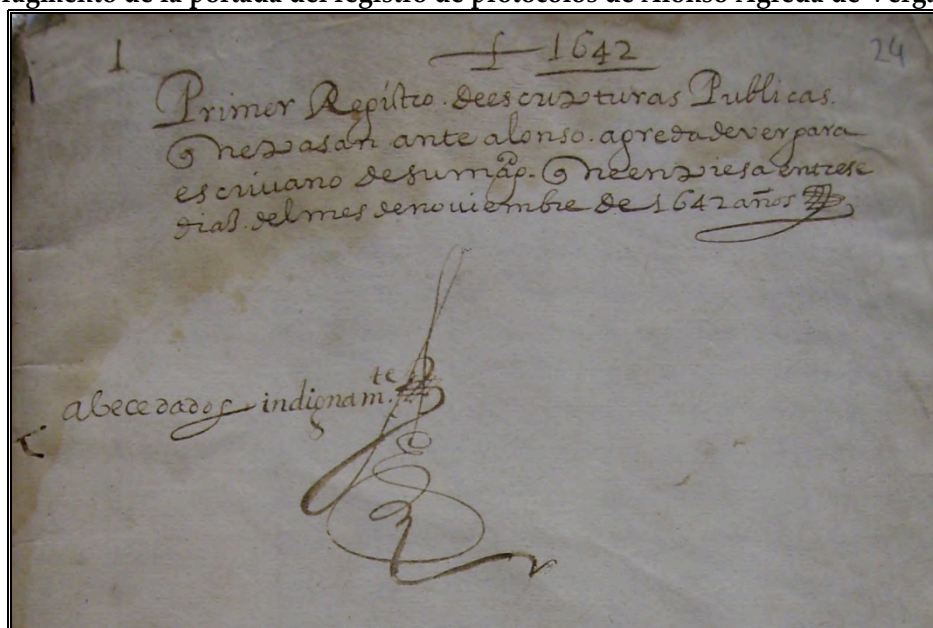 fragmento de la portada del registro de protocolos de Alonso Agreda de Verga
1 1642 24
Primer Registro de escripturas Publicas
Que pasan ante alonso agreda de vergara
escriuano de su magd. Que enpiesa en trese
dias del mes de nouiembre de 1642 años
abecedados indignamte